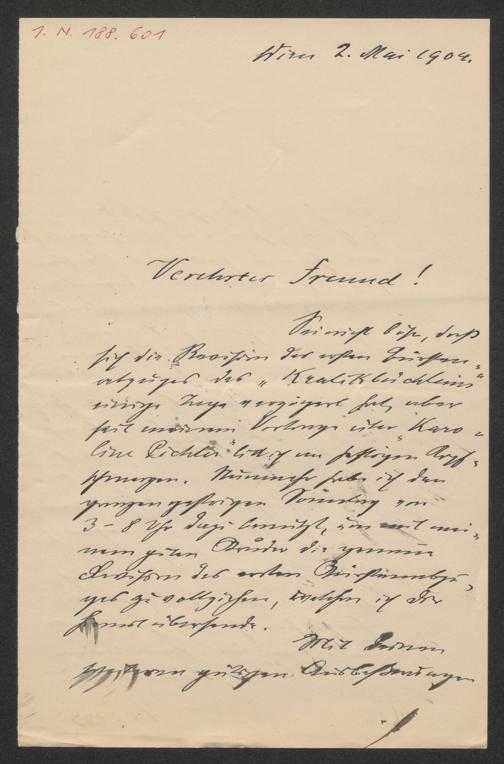 I. N. 188.601
Wien 2. Mai 1904.
Verehrter Freund!
Sei nicht böse, daß
sich die Revision des ersten Bürsten-
abzuges des „Kralikbüchleins"
einige Tage verzögert hat, aber
seit meinem Vortrage über „Karo-
line Pichler" litt ich an heftigen Kopf-
schmerzen. Nunmehr habe ich den
ganzen gestrigen Sonntag von
3-8 Uhr dazu benützt, um mit mei-
nem guten Bruder die genaue
Revision des ersten Bürstenabzu-
ges zu vollziehen, welchen ich Dir
übersende.
Mit Deinen
weiteren gütigen Ausbesserungen